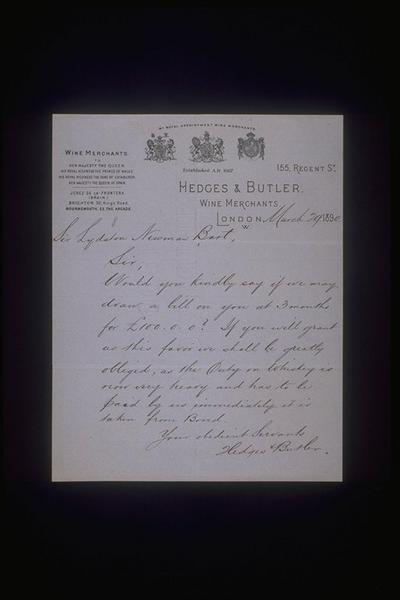 BY ROYAL APPOINTMENT WINE MERCHANTS
WINE MERCHANTS
TO
HER MAJESTY THE QUEEN
HIS ROYAL HIGHNESS THE PRINCE OF WALES
HIS ROYAL HIGHNESS THE DUKE OF EDINBURGH
HER MAJESTY THE QUEEN OF SPAIN
JEREZ DE LA FRONTERA
(SPAIN)
BRIGHTON, 30, King's Road.
BOURNEMOUTH, 23, THE ARCADE.
Established A.D. 1667
155, REGENT ST.
HEDGES & BUTLER.
WINE MERCHANTS
LONDON, March 29 1890
W
Sir Lydston Newman Bart,
Sir,
Would you kindly say if we may
draw a bill on you at 3 months
for £100.0.0? If you will grant
us this favor we shall be greatly
obliged, as the Duty on Whiskey is
now very heavy and has to be
paid by us immediately it is
taken from Bond.
Your obedient Servants
Hedges & Butler.